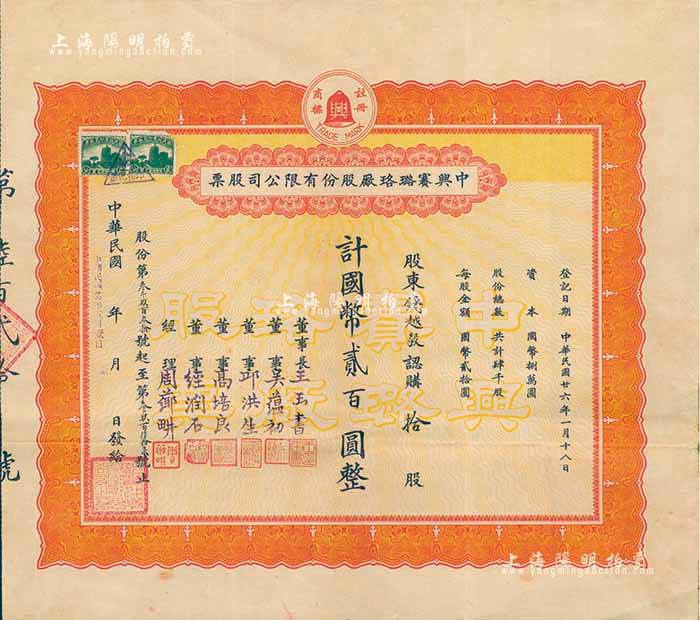 上海陽明拍賣
www.yangmingauction.com
註冊
商標
興
TRADE MARK
票股司公限有份股厰珞璐賽興中
登記日期 中華民國廿六年一月十八日
資本 國幣捌萬圓
股份總數 共計肆千股
每股金額 國幣貳拾圓
股東 越 認購 拾 股
計國幣貳百圓整
董事長 王玉書
董事 吳蘊初
董事 邱洪生
董事 高培良
董事 經潤石
經理 周薌畊
股份第 號起至第 號止
中華民國 年 月 日發給
第 陸百貳 號
股璐賽中
厰珞興
上海陽明拍賣
www.yangmingauction.com
上海陽明拍賣
www.yangmingauction.com